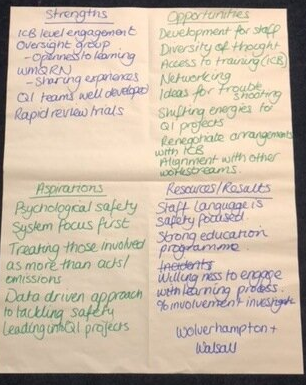 Strengths
ICB level engagement
Oversight group
- Openness to learning
WMQRN
- Sharing experiences
QI teams well developed
Rapid review trials
Opportunities
Development for staff
Diversity of thought
Access to training (ICB)
Networking
Ideas for Trouble
shooting
Shifting energies to
QI projects
Renegotiate arrangements
with ICB
Alignment with other
workstreams.
Aspirations
Psychological safety
System focus first
Treating those involved
as more than acts/
omissions
Data driven approach
to tackling safety
leading into QI projects
Resources/Results
Staff language is
safety focused
Strong education
programme.
Incidents
Willingness to engage
with learning process.
% involvement investigate
Wolverhampton +
Walsall